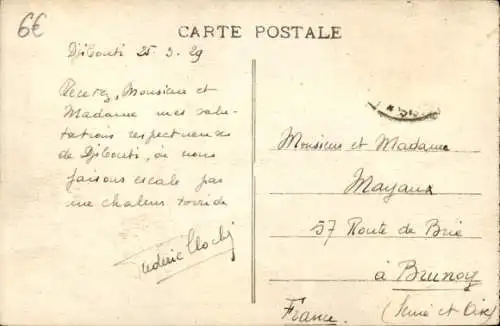 6€
CARTE POSTALE
Djibouti 25.3.29
Recevez, Monsieur et
Madame mes salu-
tations respectueuses
de Djibouti, où nous
faisons escale par
une chaleur torride
Frédéric
Monsieur et Madame
Mayaux
57 Route de Brie
à Brunoy
(Seine et Oise)
France.